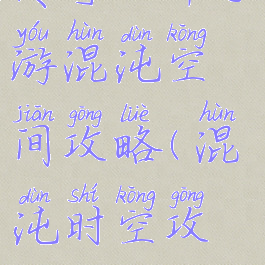 yóu hùn dùn kōng
游混沌空
jiān gōng lüè hùn
间攻略(混
dùn shí kōng gōng
沌时空攻